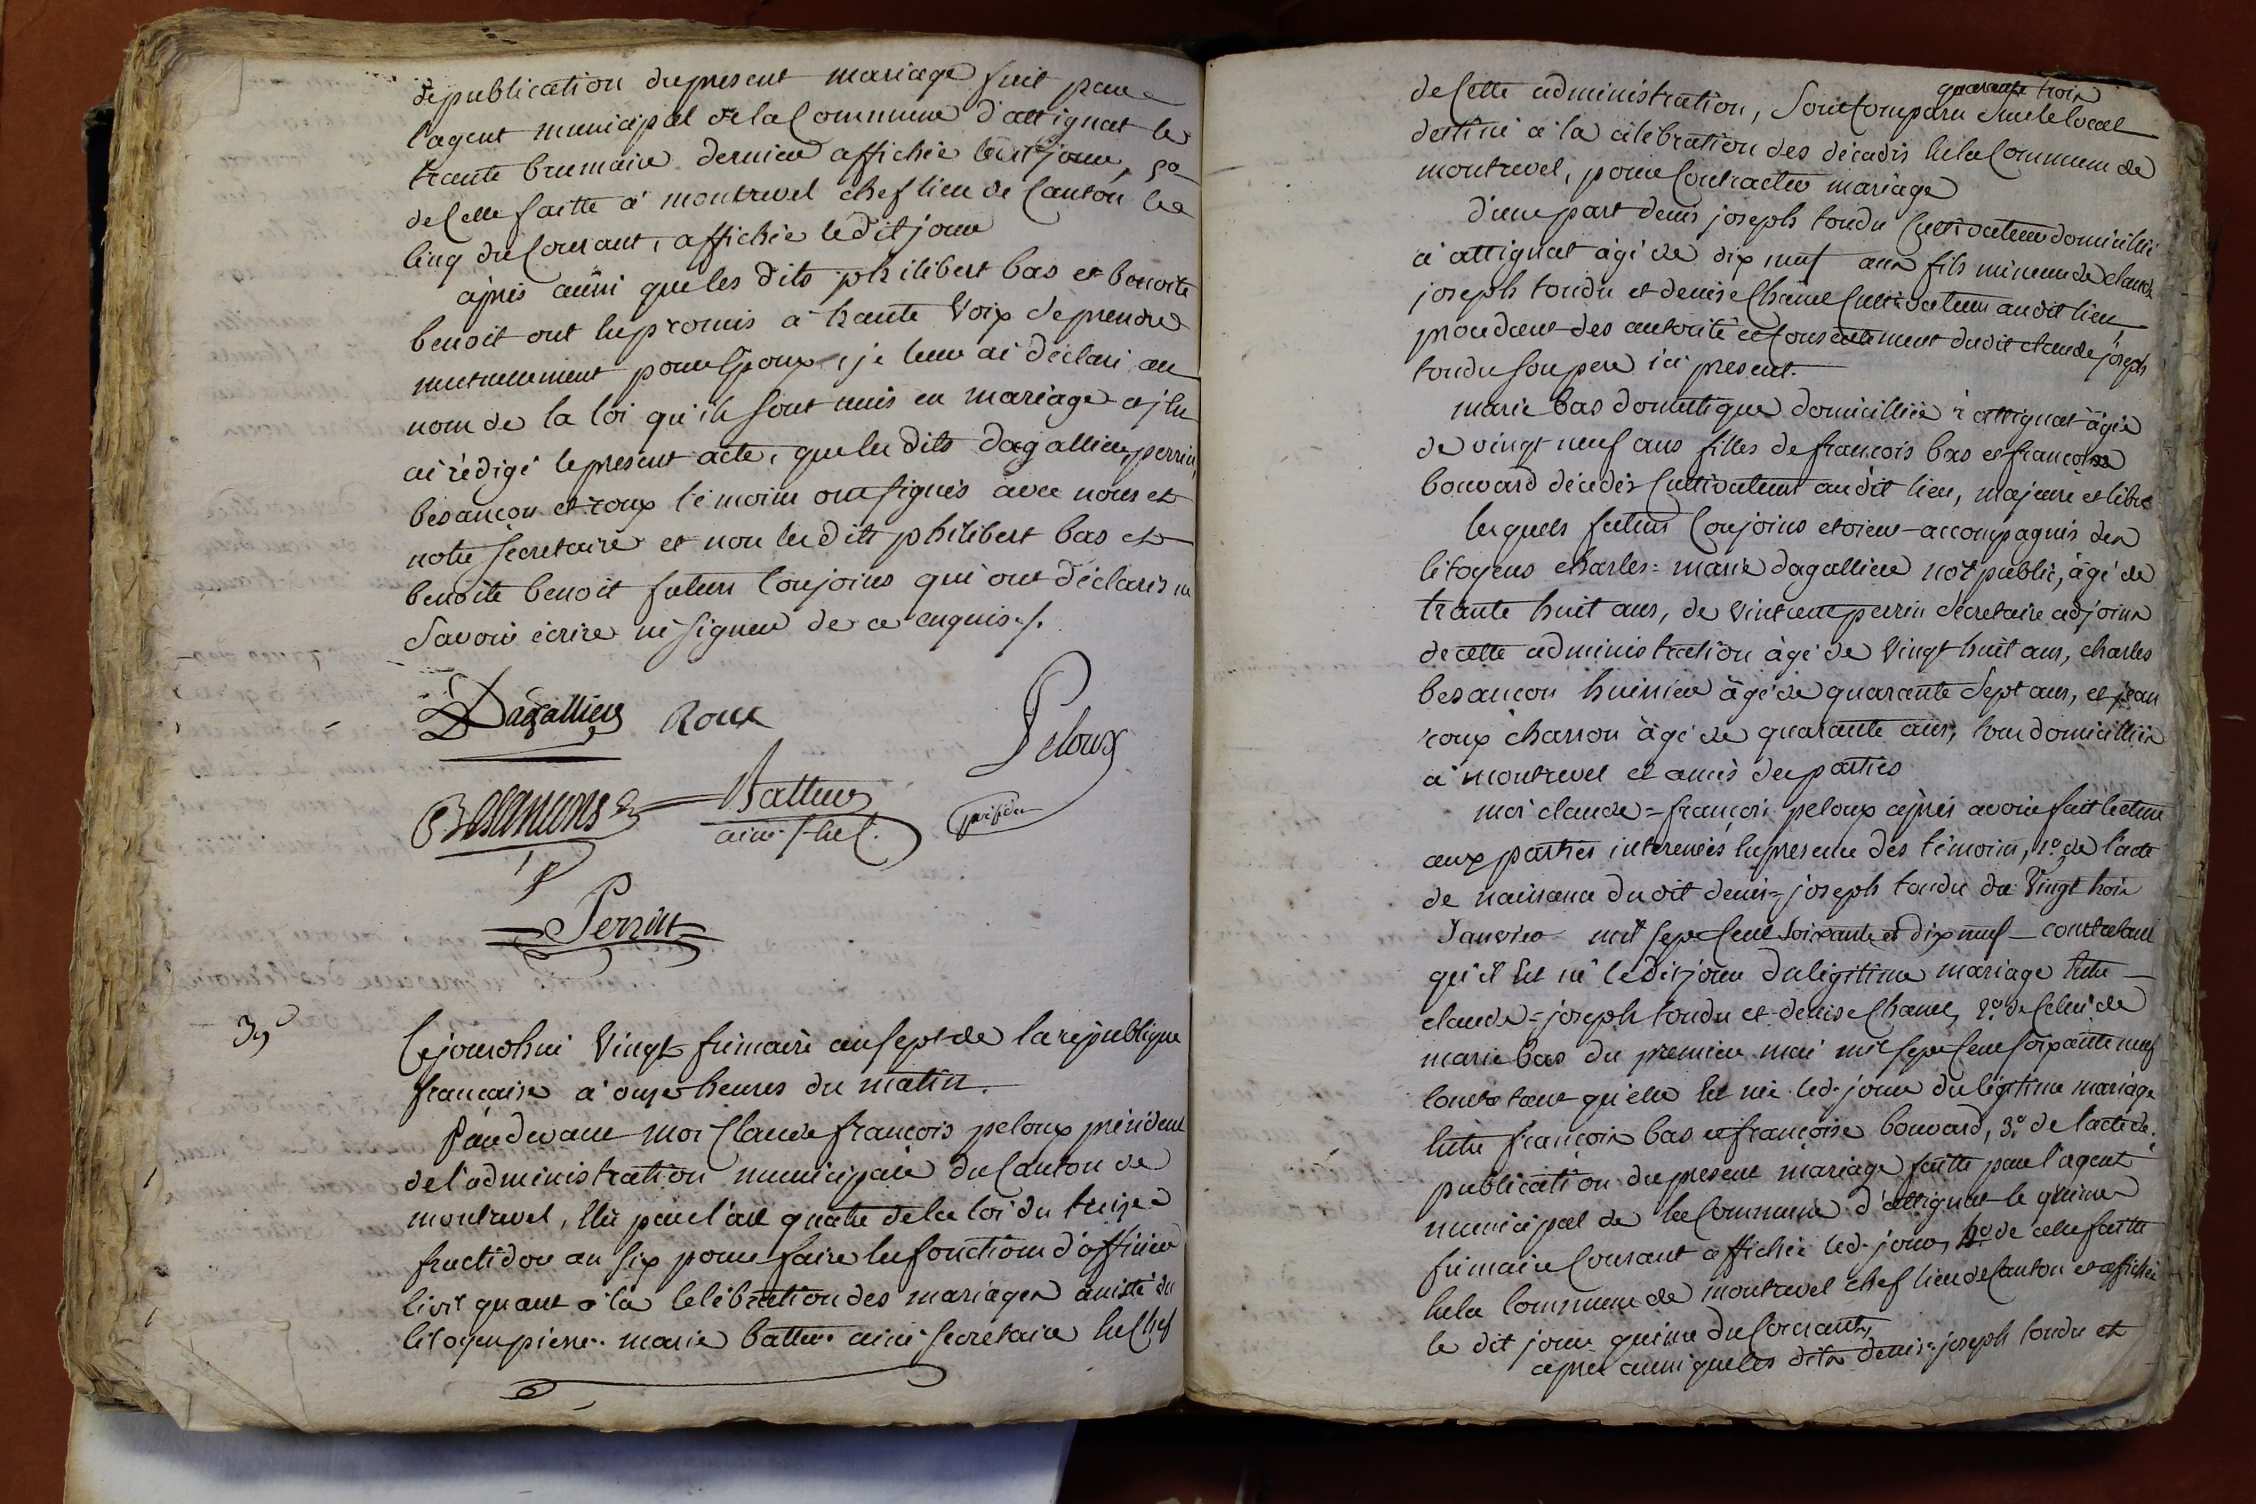 de publication du present mariage fait par
l'agent municipal de la Commune d'attignat le
trante brumaire dernier affichée ledit jour, 5o
de Celle faitte à montrevel chef lieu de Canton le
Cinq du Courant, affichée le dit jour
après aussi que les dits philibert bas et benoite
benoit ont eu promis à haute voix de prendre
mutuellement pour Epoux, je leur ai déclaré au
nom de la loi qu'ils sont unis en mariage et j'en
ai rédigé le présent acte, que les dits dagallier, perrin,
besancon et roux témoins ont signés avec nous et
notre secretaire et non les dits philibert bas et
benoite benoit futurs Conjoins qui ont déclarés ne
Savoir écrire ni signer de ce enquis./.
Dagallier Roux
Peloux
Besancons Batteur
aîné s. en chef. présidt
Perrin
39
Cejourdhui vingt frimaire an sept de la république
francaise à onze heures du matin.
Pardevant moi Claude françois peloux président
de l'administration municipale du Canton de
montrevel, Elu par l'art quatre de la loi du treize
fructidor an six pour faire les fonctions d'officier
Civil quant à la Celébration des mariages assisté du
Citoyen pierre-marie batteur ainé secretaire en Chef
quarante trois
de Cette administration, sont Comparu sur le local
destiné à la célébration des décadis en la Commune de
montrevel, pour Contracter mariage
d'une part denis joseph tondu Cultivateur domicillié
à attignat âgé de dix neuf ans fils mineur de claude
joseph tondu et denise Chanel Cultivateurs audit lieu,
procédant des autorité et Consentement dudit claude joseph
tondu son pere ici present.
marie bas domestique domicilliée à attignat âgée
de vingt neuf ans filles de françois bas et françoise
bouvard décédés Cultivateurs audit lieu, majeure et libre
lesquels futurs Conjoins etoient accompagnés des
Citoyens charles=marie dagallier not public, âgé de
trante huit ans, de vincent perrin sécretaire adjoint
de cette administration âgé de vingt huit ans, charles
besancon huissier âgé de quarante sept ans, et jean
roux charron âgé de quarante ans, tous domicilliés
à montrevel et amis des parties
moi claude=françois peloux après avoir fait lecture
aux parties interessées en presence des témoins, 1o de l'acte
de naissance dudit denis=joseph tondu du vingt trois
Janvier mil sept Cent soixante et dix neuf constatant
qu'il est né ledit jour du légitime mariage Entre
claude=joseph tondu et denise Chanel, 2o de Celui de
marie bas du premier mai mil sept Cent soixante neuf
Constatant qu'elle est née led. jour du légitime mariage
Entre françois bas et françoise bouvard, 3o de l'acte de
publication du present mariage faitte par l'agent
municipal de la Commune d'attignat le quinze
frimaire Courant affichée led. jour, 4o de celle faitte
en la Commune de montrevel chef lieu de Canton et affichée
le dit jour quinze du Courant,
après aussi que les dits denis=joseph tondu et